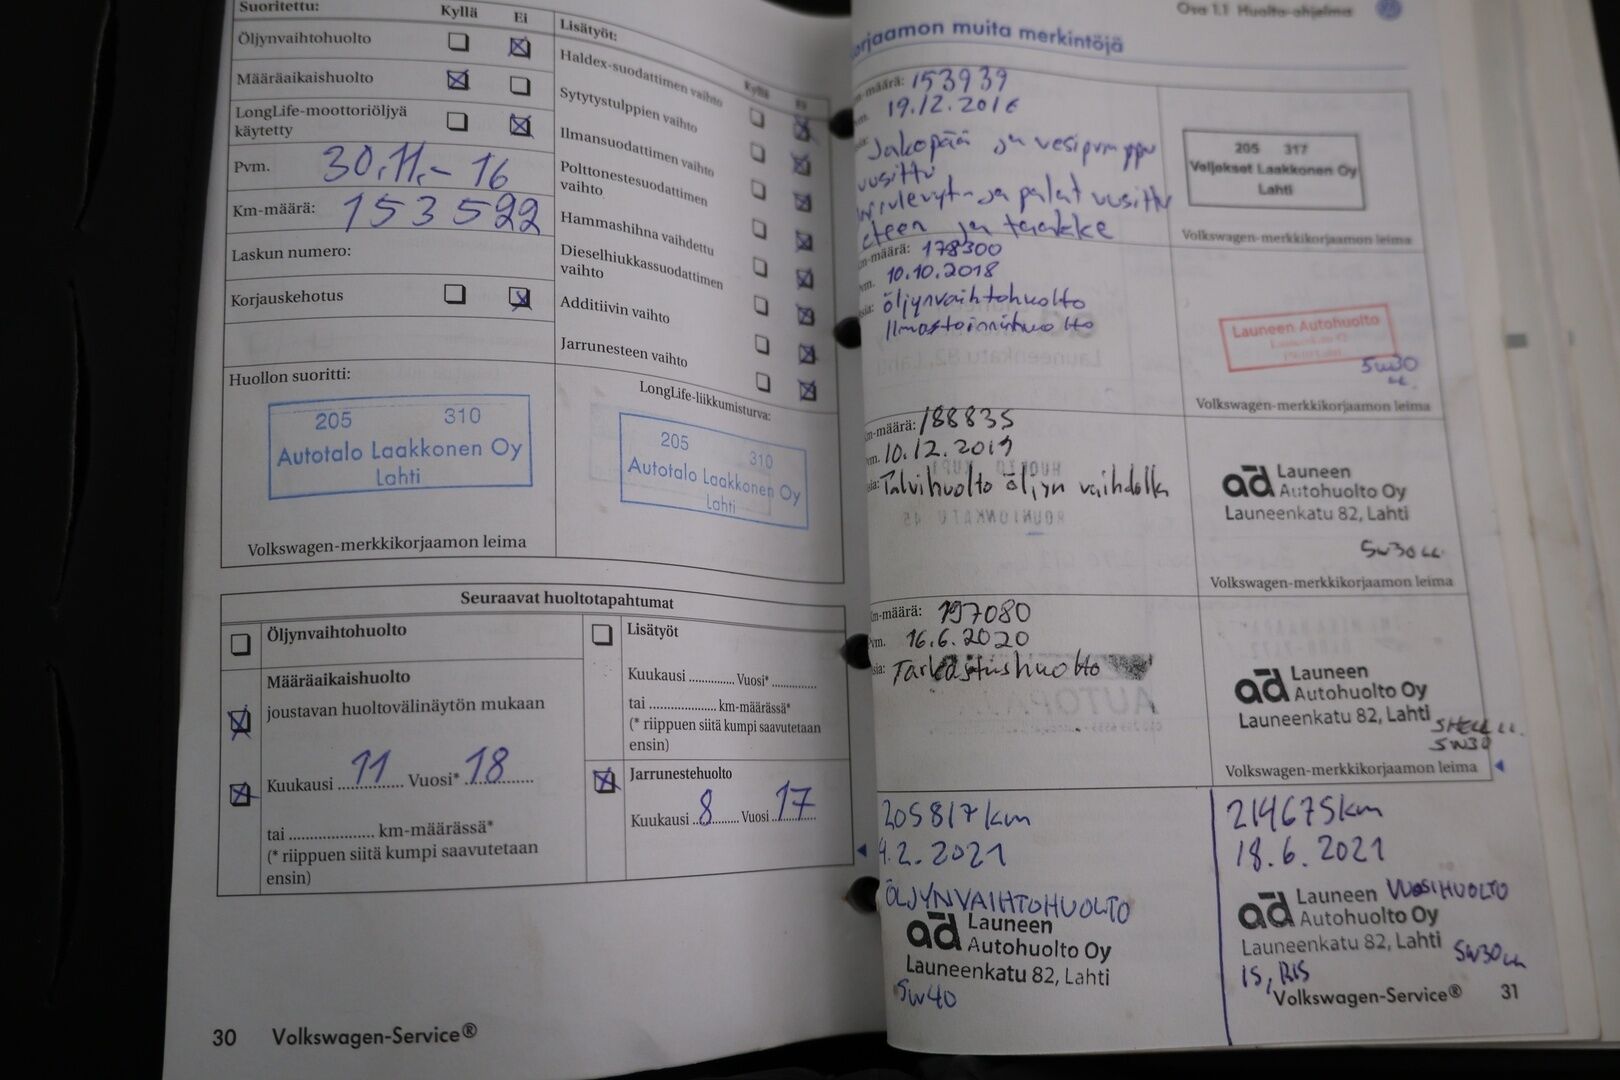 Suoritettu:
Kyllä
Ei
Öljynvaihtohuolto
Määräaikaishuolto
LongLife-moottoriöljyä
käytetty
Pvm. 30.11.-16
Km-määrä: 153522
Laskun numero:
Korjauskehotus
Huollon suoritti:
205 310
Autotalo Laakkonen Oy
Lahti
Volkswagen-merkkikorjaamon leima
Lisätyöt:
Kyllä
Ei
Haldex-suodattimen vaihto
Sytytystulppien vaihto
Ilmansuodattimen vaihto
Polttonestesuodattimen
vaihto
Hammashihna vaihdettu
Dieselhiukkassuodattimen
vaihto
Additiivin vaihto
Jarrunesteen vaihto
LongLife-liikkumisturva:
205 310
Autotalo Laakkonen Oy
Lahti
Seuraavat huoltotapahtumat
Öljynvaihtohuolto
Määräaikaishuolto
joustavan huoltovälinäytön mukaan
Kuukausi 11 Vuosi* 18
tai .................... km-määrässä*
(* riippuen siitä kumpi saavutetaan
ensin)
Lisätyöt
Kuukausi .............. Vuosi* ..............
tai .................... km-määrässä*
(* riippuen siitä kumpi saavutetaan
ensin)
Jarrunestehuolto
Kuukausi 8 Vuosi 17
30 Volkswagen-Service®
Osa 1.1 Huolto-ohjelma
orjaamon muita merkintöjä
m-määrä: 153939
vm. 19.12.2016
Jakopää ja vesipumppu
uusittu
ja palat uusittu
eteen ja taakke
205 317
Veljekset Laakkonen Oy
Lahti
Volkswagen-merkkikorjaamon leima
m-määrä: 178300
vm. 10.10.2018
sia: öljynvaihtohuolto
Ilmastointihuolto
Launeen Autohuolto
5W30
LL.
Volkswagen-merkkikorjaamon leima
m-määrä: 188835
vm. 10.12.2019
sia: Talvihuolto öljyn vaihdolla
ad Launeen
Autohuolto Oy
Launeenkatu 82, Lahti
5W30 LL
Volkswagen-merkkikorjaamon leima
m-määrä: 197080
vm. 16.6.2020
sia: Tarkastushuolto
ad Launeen
Autohuolto Oy
Launeenkatu 82, Lahti
SHELL LL.
5W30
Volkswagen-merkkikorjaamon leima
205817km
4.2.2021
ÖLJYNVAIHTOHUOLTO
ad Launeen
Autohuolto Oy
Launeenkatu 82, Lahti
5W40
214675km
18.6.2021
VUOSIHUOLTO
ad Launeen
Autohuolto Oy
Launeenkatu 82, Lahti
5W30 LL
IS, RIS
Volkswagen-Service® 31